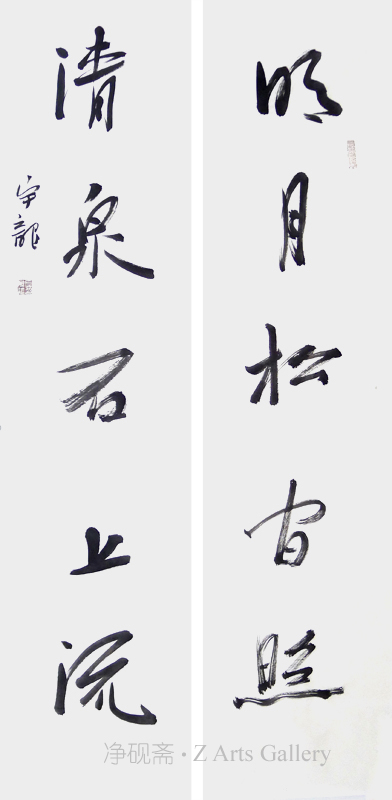 明月松间照
清泉石上流
宇龍
净砚斋·Z Arts Gallery